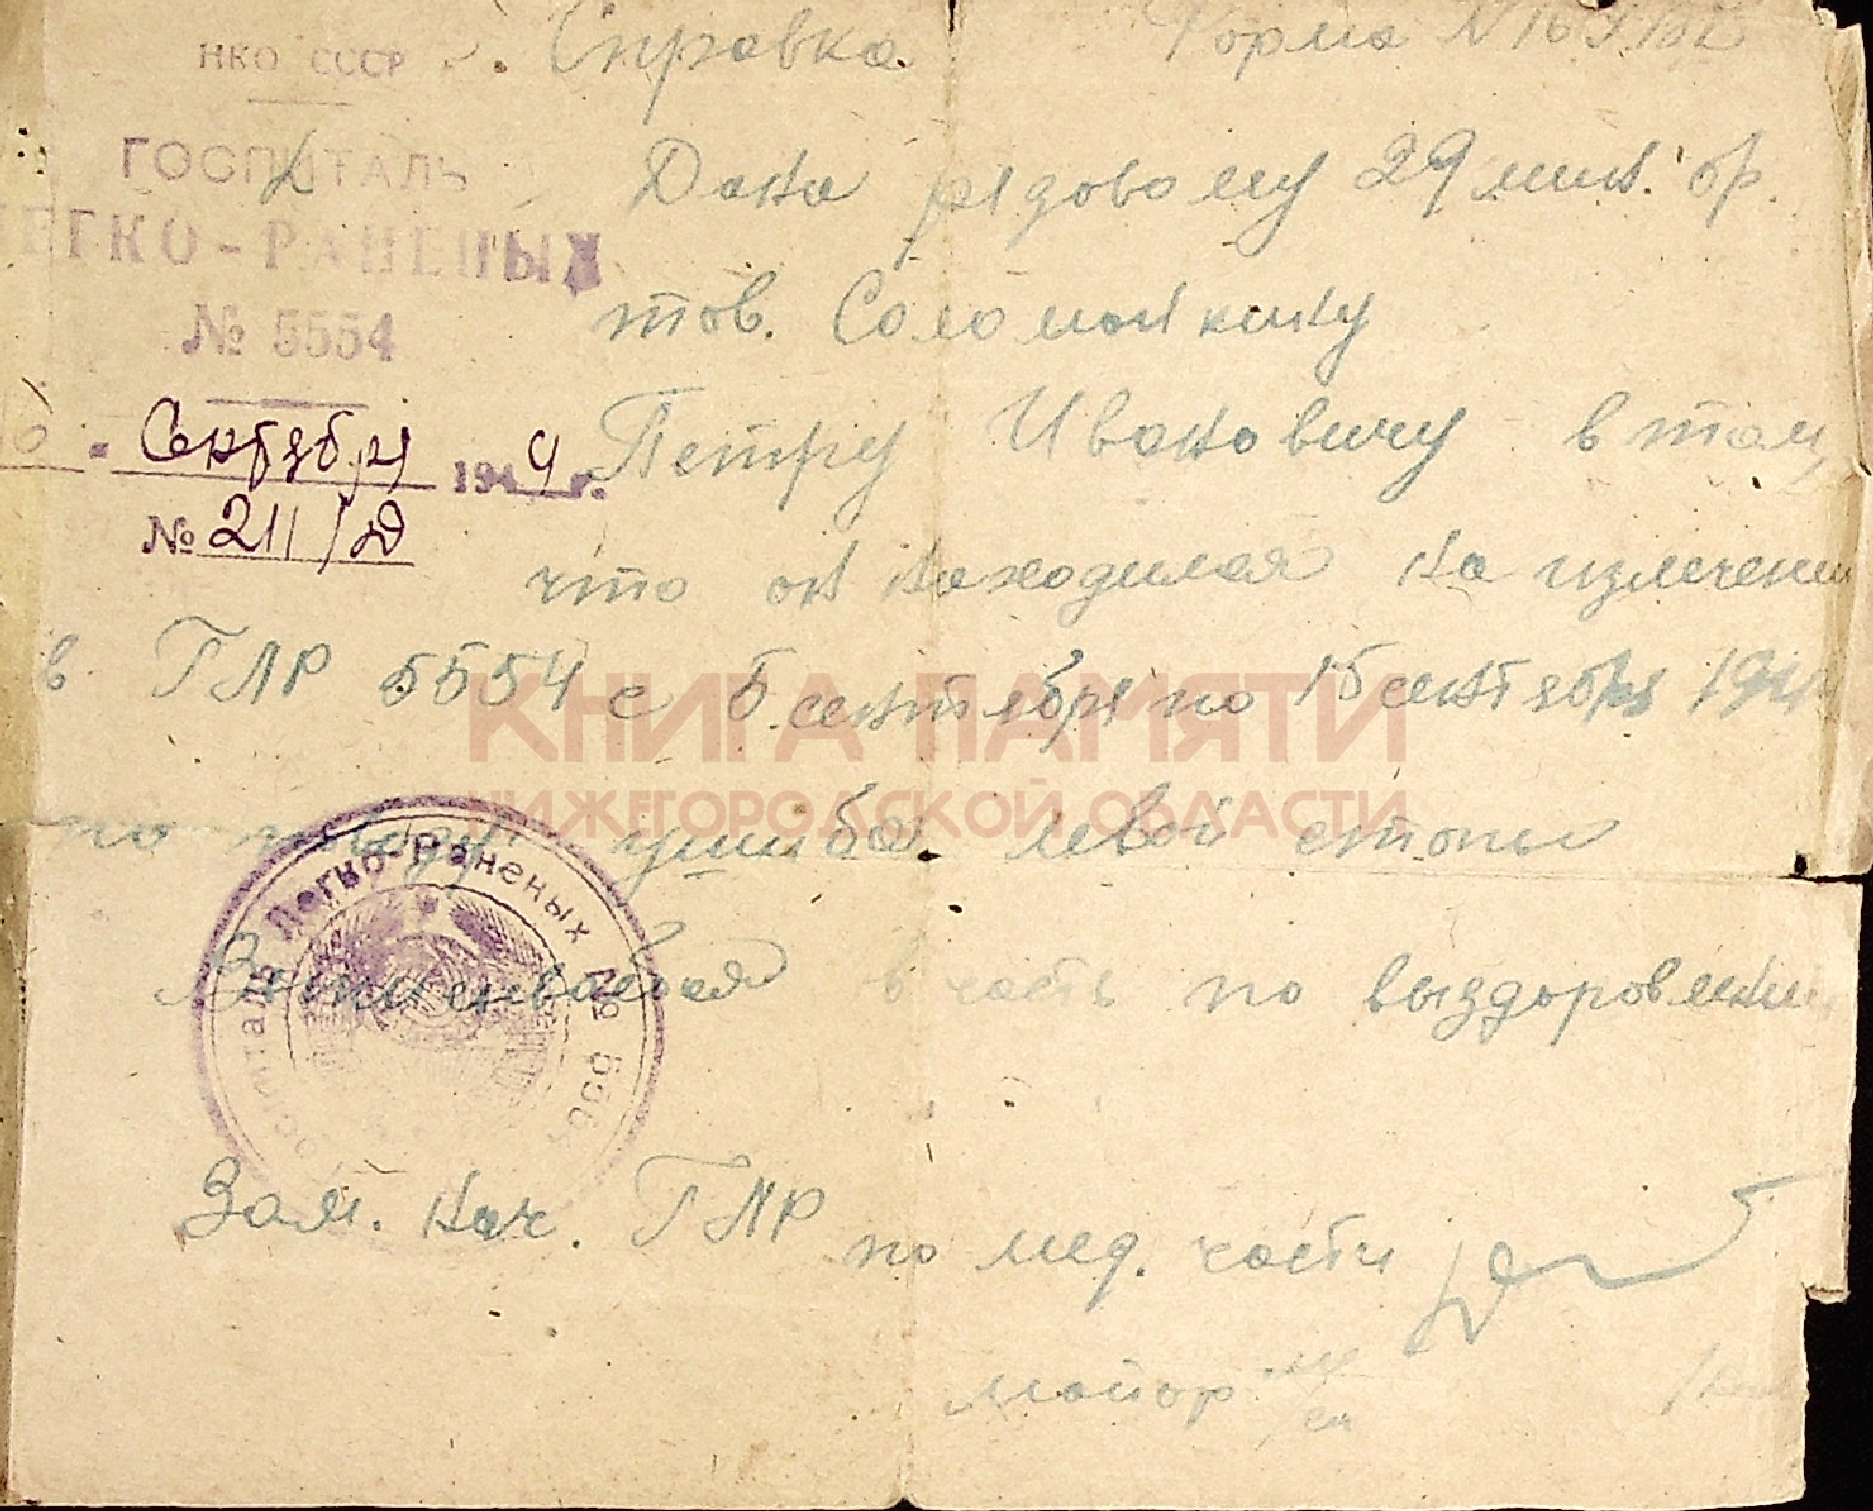 НКО СССР
ГОСПИТАЛЬ
ЛЕГКО-РАНЕНЫХ
№ 5554
Сентября 1944 г.
№ 211/Д
Справка Форма N 16
Дана рядовому 29 мин. бр.
тов. Соломойкину
Петру Ивановичу в том,
что он находился на излечени
в ГЛР 5554 с 5 сентября по 15 сентября 194
по поводу ушиба левой стопы
Выписывается в часть по выздоровлени
Зам. нач. ГЛР по мед. части
майор м/с
Госпиталь Легко-Раненых № 5554
КНИГА ПАМЯТИ
НИЖЕГОРОДСКОЙ ОБЛАСТИ